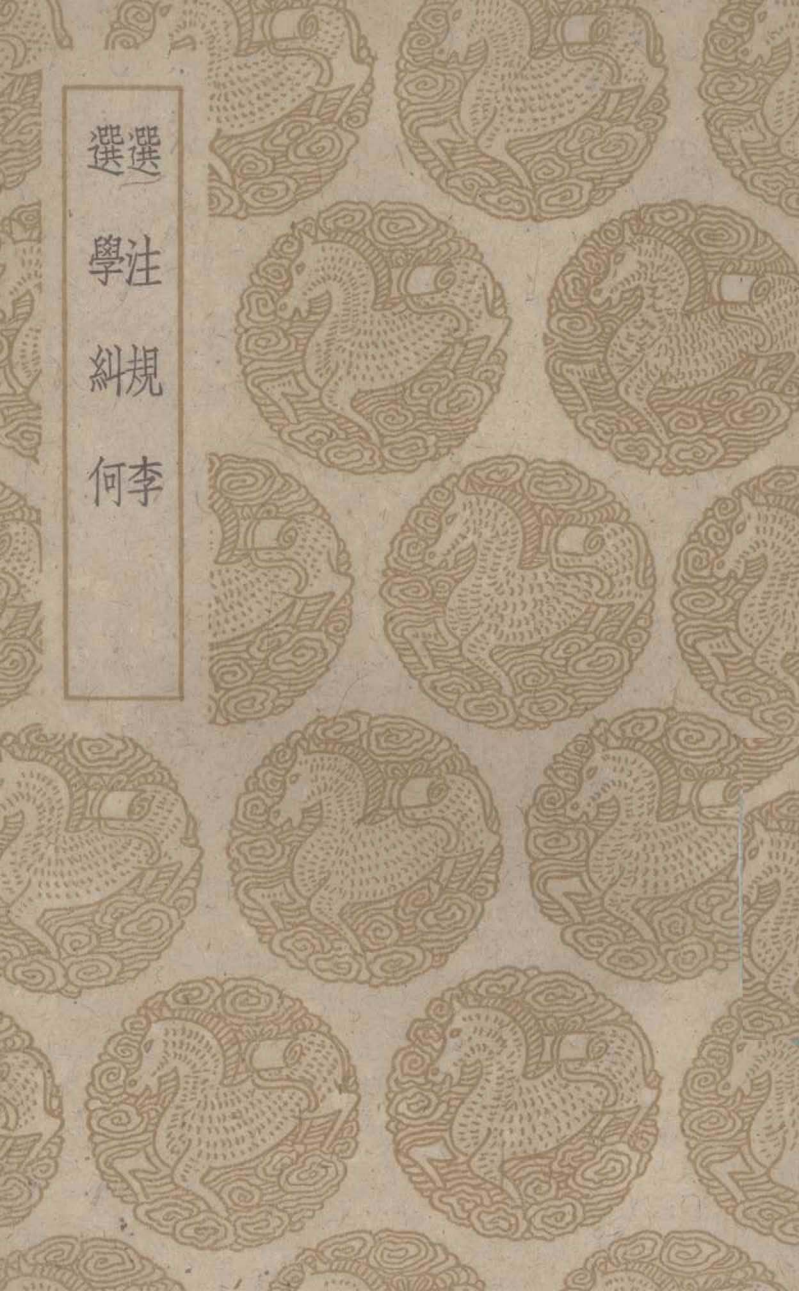 選注規李
選學糾何